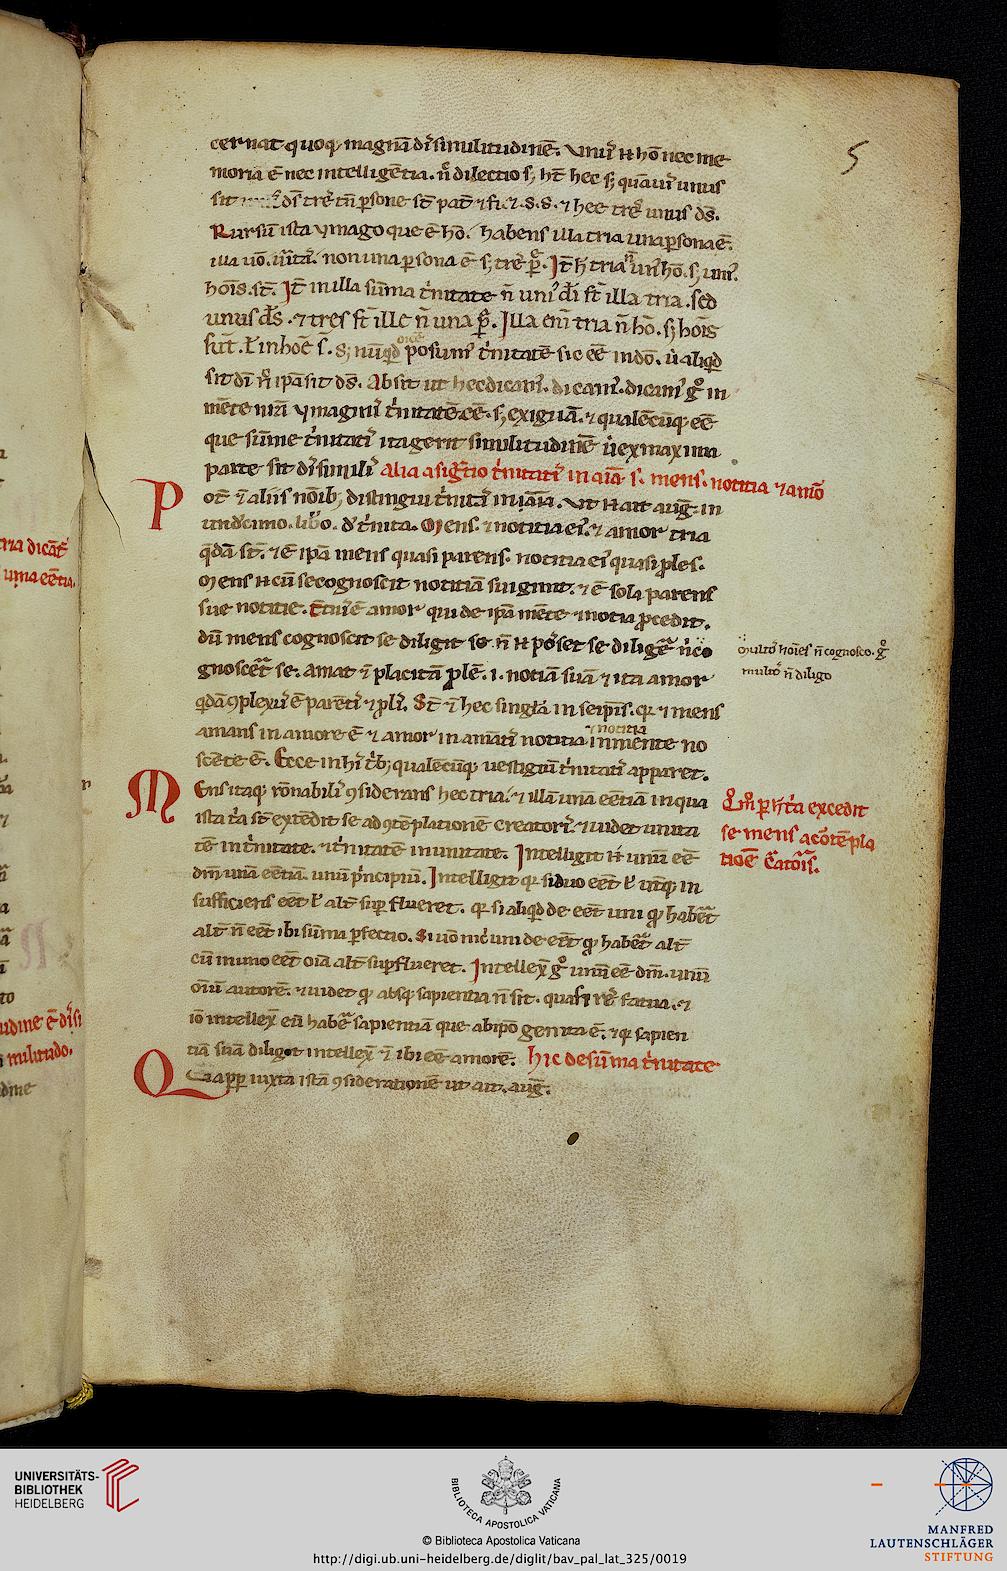 5
cernat quoq; magnā diſsimilitudinē. Vnuſ n̄ hō nec me
moria ē nec intelligētia. n̄ dilectio ſ; hī hec ſ; quāuiſ unus
ſit dſ̄ treſ tn̄ pſone ſt̄ pat̄ ⁊ fi. ⁊ .s.s. ⁊ hee treſ unus dſ̄.
Rurſū iſta ymago que ē hō. habens illa tria una pſona ē.
illa uō. non una pſona ē ſ; treſ p̄. It̄ h̄ tria n̄ un' hō. ſ; un'
hōis. ſt̄. It̄ in illa ſūma t̓nitate n̄ uni' dī ſt̄ illa tria. ſed
unus dſ̄. ⁊ tres ſt̄ ille n̄ una p̄. Illa enī tria n̄ hō. ſ; hōis
ſūt. ł in hōe ſ̄. S; nūqd poſum' t̓nitatē ſic eē in dō. ut̄ aliqd
ſit dī n̄ ipā ſit dſ̄. Abſit ut hec dicam'. dicam'. dicam' g̊ in
mēte nrā ymaginiſ t̓nitatē eē. ſ; exiguā. ⁊ qualēcūq; eē
que ſūme t̓nitatiſ ita gerit ſimilitudinē ut̄ ex maxima
parte ſit diſsimiliſ Alia aſigt̄io t̓nitatiſ in aīa .ſ. mens. notitia ⁊ amo
Pot̄ ⁊ aliis noīb; diſtingui t̓nitaſ in aīa. Vt n̄ ait aug̅. in
undcimo. libo. d' t̓nita. Mens. ⁊ notitia ei'. ⁊ amor tria
q̄dā ſt̄. ⁊ ē ipā mens quaſi parens. notitia ei' quaſi ples.
Mens n̄ cū ſe cognoſcit notitiā ſui gignit. ⁊ ē ſola parens
ſue notitie. Tti' ē amor qui de ipā mēte ⁊ notia pcedit.
dū mens cognoſcit ſe diligit ſe. n̄ n̄ poſſet ſe diligē n̄ co
gnoſcet̄ ſe. amat ⁊ placitā plē. i. notiā ſuā ⁊ ita amor
q̄dā 9plexuſ ē parētiſ ⁊ pliſ. St̄ ⁊ hec ſingl̄a in ſeipīs. qr ⁊ mens
notitia
amans in amore ē ⁊ amor in amātiſ notitia in mente no
ſcēte ē. Ecce in hiſ t̓b; qualēcūq; ueſtigiū t̓nitatiſ apparet.
Mens itaq; rōnabiliſ 9ſiderans hec tria. ⁊ illā unā eētiā in qua
iſta t̓a ſt̄ extēdit ſe ad 9tēplationē creatoriſ. ⁊ uidet unita
tē in t̓nitate. ⁊ t̓nitatē in unitate. Intelligit n̄ unū eē
dm̄ unā eētiā. unū p̓ncipiū. Intelligit qr ſi duo eēt ł utq; in
ſufficiens eēt ł alt̄ ſup flueret. qr ſi aliqd de eēt uni qd habet̄
alt̄ n̄ eēt ibi ſūma pfectio. Si uō nich uni de eēt qd habet̄ alt̄
cū in uno eēt oīa alt̄ ſupflueret. Intellex̄ g̊ unū eē dm̄. unū
oīū autorē. ⁊ uidet qd abſq; ſapientia n̄ ſit. quaſi reſ fatua. ⁊
iō intellex̄ eū habē ſapientiā que ab ipō genita ē. ⁊ qr ſapien
tiā ſuā diligit intellex̄ ⁊ ibi eē amorē. hic de ſūma t̓nitate
Qapp iuxta iſtā 9ſiderationē ut ait. aug̅.
Multoſ hoīes n̄ cognoſco. g̊
multoſ n̄ diligo
Qm̄ p h̄ t̓a excedit
ſe mens a cōtēpla
tioē c̄atoiſ.
UNIVERSITÄTS-
BIBLIOTHEK
HEIDELBERG
BIBLIOTECA APOSTOLICA VATICANA
© Biblioteca Apostolica Vaticana
http://digi.ub.uni-heidelberg.de/diglit/bav_pal_lat_325/0019
MANFRED
LAUTENSCHLÄGER
STIFTUNG